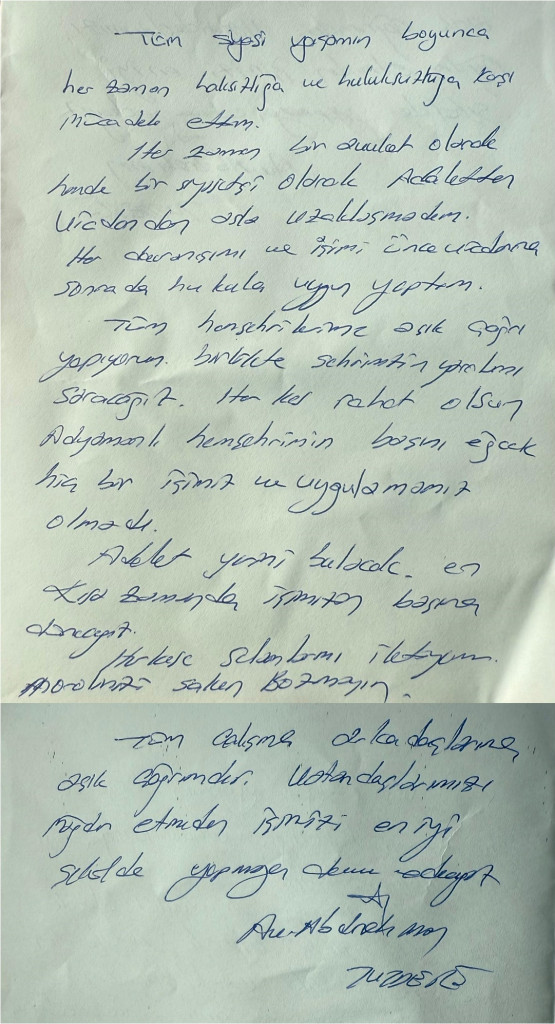 Tüm siyasi yaşamım boyunca
her zaman haksızlığa ve hukuksuzluğa karşı
mücadele ettim.
Her zaman bir avukat olarak
hemde bir siyasetçi olarak Adaletten
Vicdandan asla uzaklaşmadım.
Her davranışımı ve işimi önce vicdana
sonrada hukuka uygun yaptım.
Tüm hemşehrilerime açık çağrı
yapıyorum. birlikte şehrimizin yaralarını
saracağız. Herkes rahat olsun
Adıyamanlı hemşehrimin başını eğecek
hiç bir işimiz ve uygulamamız
olmadı.
Adalet yerini bulacak. en
kısa zamanda işimizin başına
döneceğiz.
Herkese selamlarımı iletiyorum.
moralinizi sakın Bozmayın.
Tüm çalışma arkadaşlarıma
açık çağrımdır. Vatandaşlarımızı
mağdur etmeden işimizi en iyi
şekilde yapmaya devam edeceğiz
Av. Abdurrahman
TUTDERE